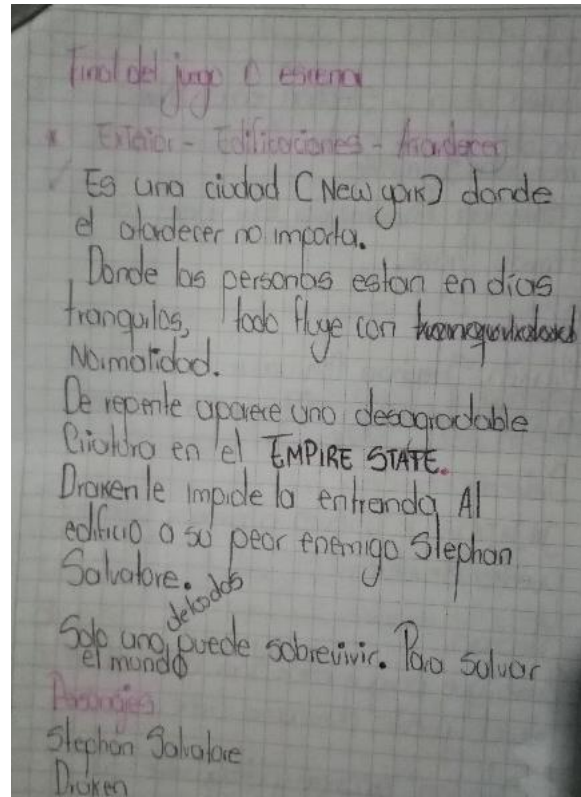 Final del juego o escena
* Exterior - Edificaciones - Atardecer
Es una ciudad (New york) donde
el atardecer no importa.
Donde las personas estan en dias
tranquilos, todo fluye con
Normalidad.
De repente aparece una desagradable
Criatura en el EMPIRE STATE.
Draken le impide la entranda Al
edificio a su peor enemigo Stephan
Salvatore.
de los dos
Solo uno puede sobrevivir. Para salvar
el mundo
Personajes
Stephan Salvatore
Draken